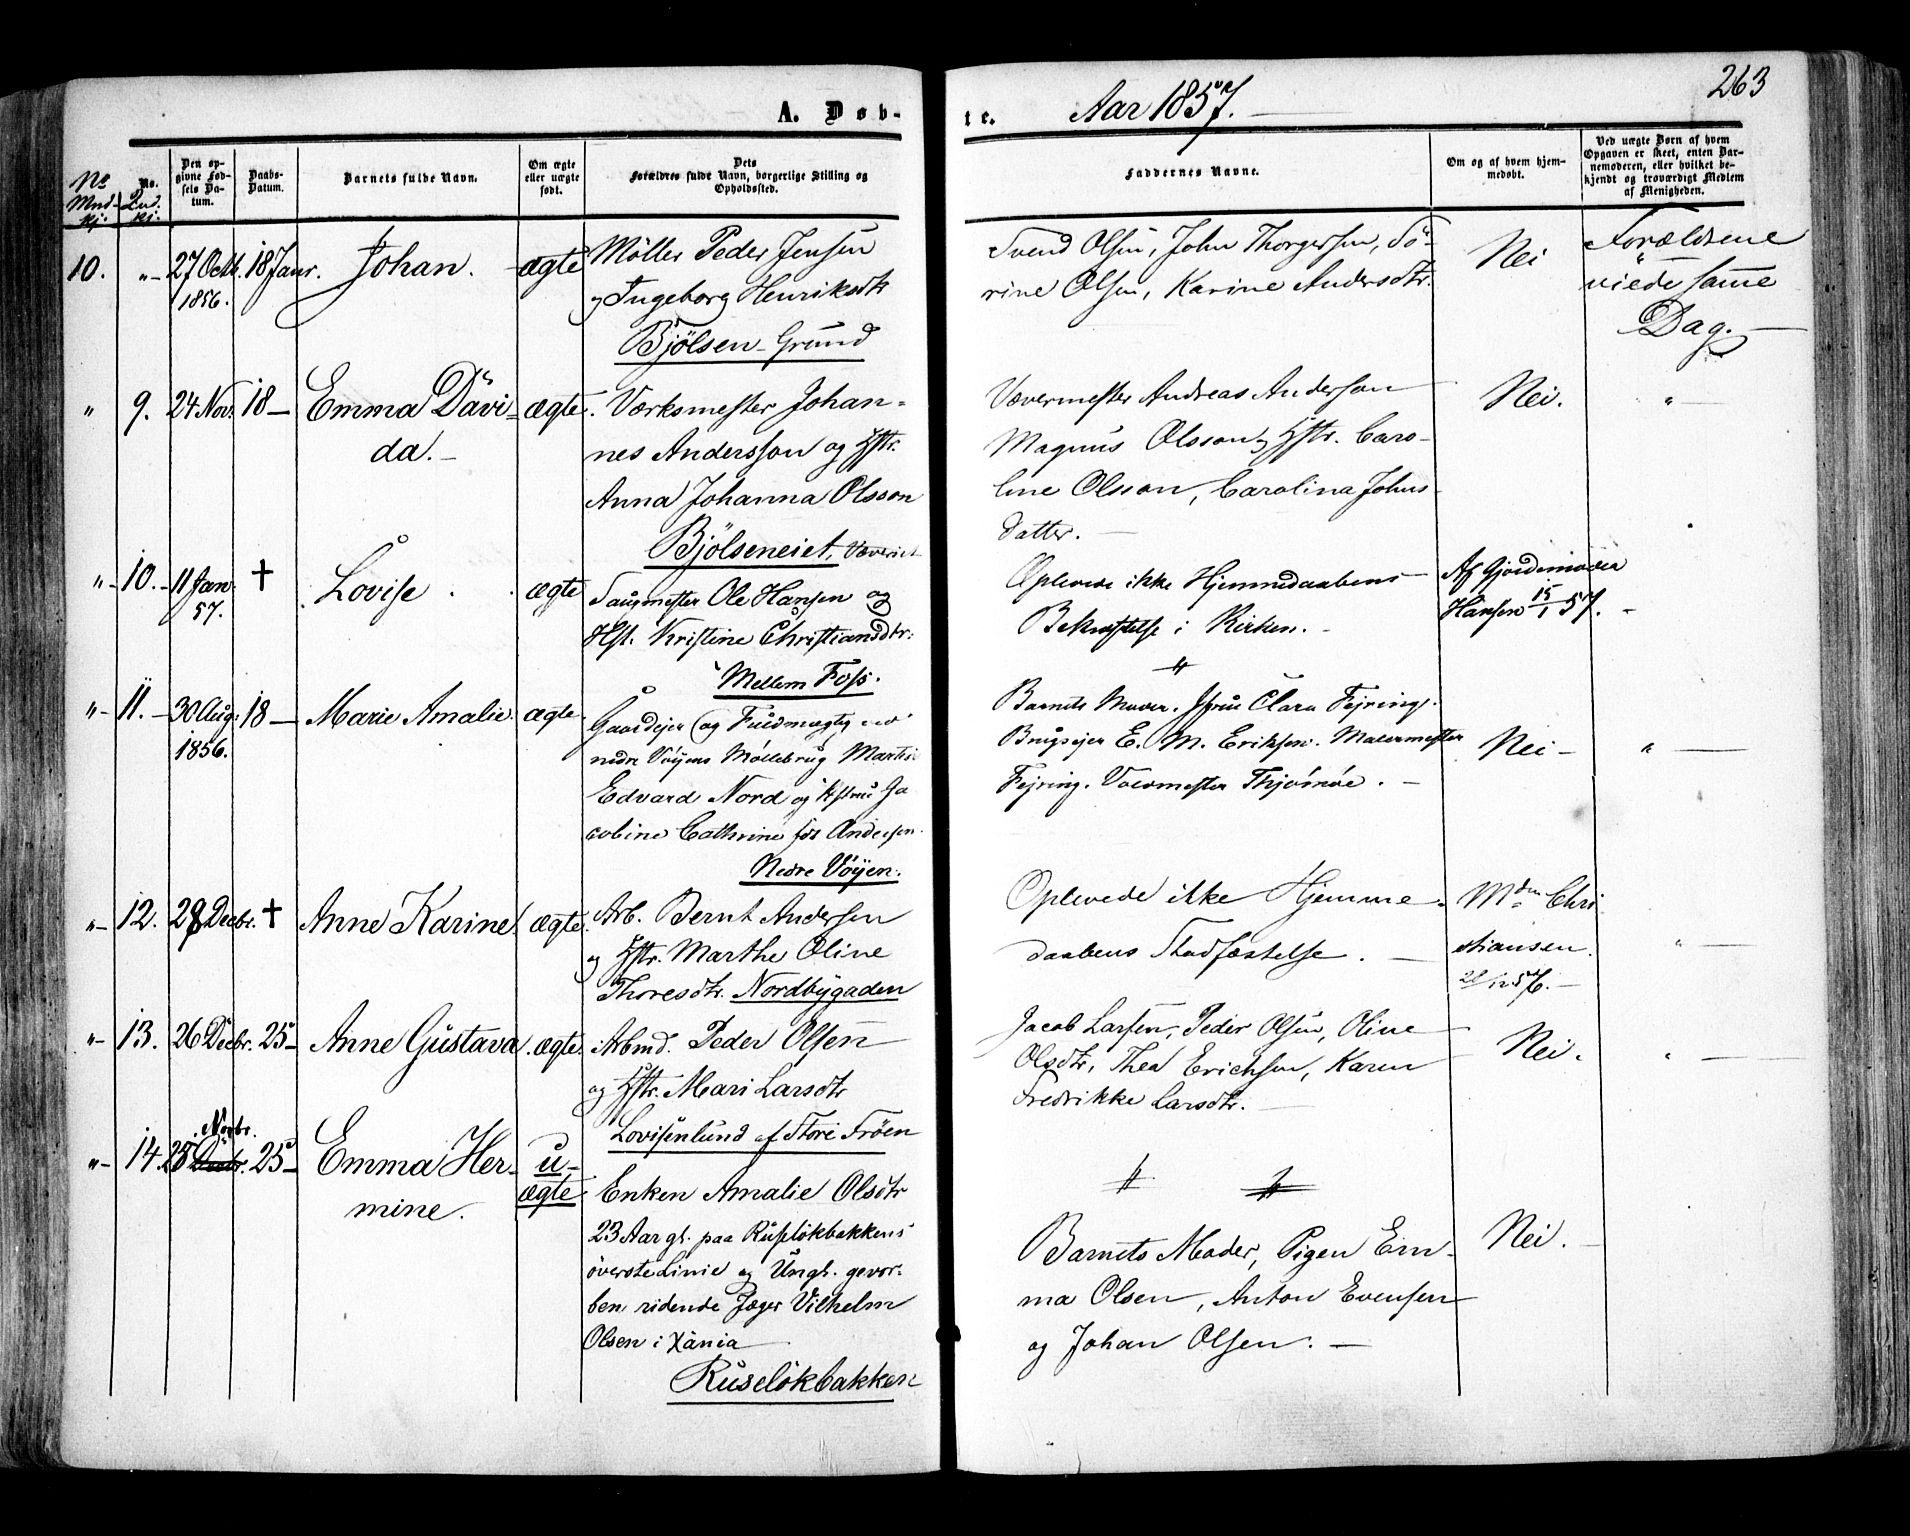 263
A. Døb-
te.
Aar 1857.
No. Mnd-kj.
No. Qvd. kj.
Den opgivne Fødsels Datum.
Daabs-Datum.
Barnets fulde Navn.
Om ægte eller uægte født.
Dets Forældres fulde Navn, borgerlige Stilling og Opholdssted.
Faddernes Navne.
Om og af hvem hjemmedøbt.
Ved uægte Børn af hvem Opgaven er skeet, enten Barnemoderen, eller hvilket bekjendt og troværdigt Medlem af Menigheden.
10. "- 27 Octb. 18 Janr. Johan. ægte Møller Peder Jensen
1856.
og Ingeborg Henriksdtr
Bjölsen-Grund
Svend Olsen, John Thorgersen, Sö-
rine Olsen, Karine Andersdtr.
Nei
Forældrene
viede samme
Dag.
" 9. 24 Nov. 18- Emma Davi-
da.-
ægte. Værksmester Johan-
nes Andersson og Hstr.
Anna Johanna Olsson
Bjölseneiet, Væveriet
Vævermester Andreas Anderson
Magnus Olsson og Hstr. Caro-
line Olsson, Carolina Johns-
datter.
Nei. "
"- 10. 11 Jan. † Lovise ægte Saugmester Ole Hansen og
57.
Hst. Kristine Christiansdtr:
Mellem Foss.
Oplevede ikke Hjemmedaabens
Bekræftelse i Kirken.
Af Gjordemoder
Hansen 15/1 57.
"- 11. 30 Aug: 18- Marie Amalie. ægte. Gaardejer (og Fuldmægtig ved
1856.
nedre Vöyens Möllebrug Martin
Edvard Nord og Hstru Ja
cobine Cathrine föd Andersen
Nedre Vöyen.
Barnets Moder. Jfru Clara Fejring.
Brugsejer E. M. Eriksen. Malermester
Fejring. Voldmester Thjömöe.
Nei- "
"- 12. 28 Decbr. † Anne Karine. ægte. Arb. Bernt Andersen
og Hstr. Marthe Oline
Thoresdtr. Nordbygaden
Oplevede ikke Hjemme
daabens Stadfæstelse.
Mdm Chri
stiansen.
28/12 56.
"- 13. 26 Decbr. 25- Anne Gustava. ægte. Arbmd. Peder Olsen
og Hstr. Mari Larsdtr
Lovisenlund af Store Fröen
Jacob Larsen, Peder Olsen, Oline
Olsdtr, Thea Erichsen, Karen
Fredrikke Larsdtr.
Nei. "
Novbr.
"- 14. 25 Decbr. 25- Emma Her-
mine.
u-
ægte. Enken Amalie Olsdtr
23 Aar gl. paa Ruselökbakkens
överste Linie og Ungk. gevor-
ben ridende Jæger Vilhelm
Olsen i Xania
Ruselökbakken
Barnets Moder, Pigen Em-
ma Olsen, Anton Evensen
og Johan Olsen.
Nei.